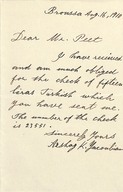 Broussa Aug. 16, 1910
Dear Mr. Peet
I have recieved
and am much obliged
for the check of fifteen
liras Turkish which
you have sent me.
The number of the check
is 23551.
Sincerely Yours
Arshag K.